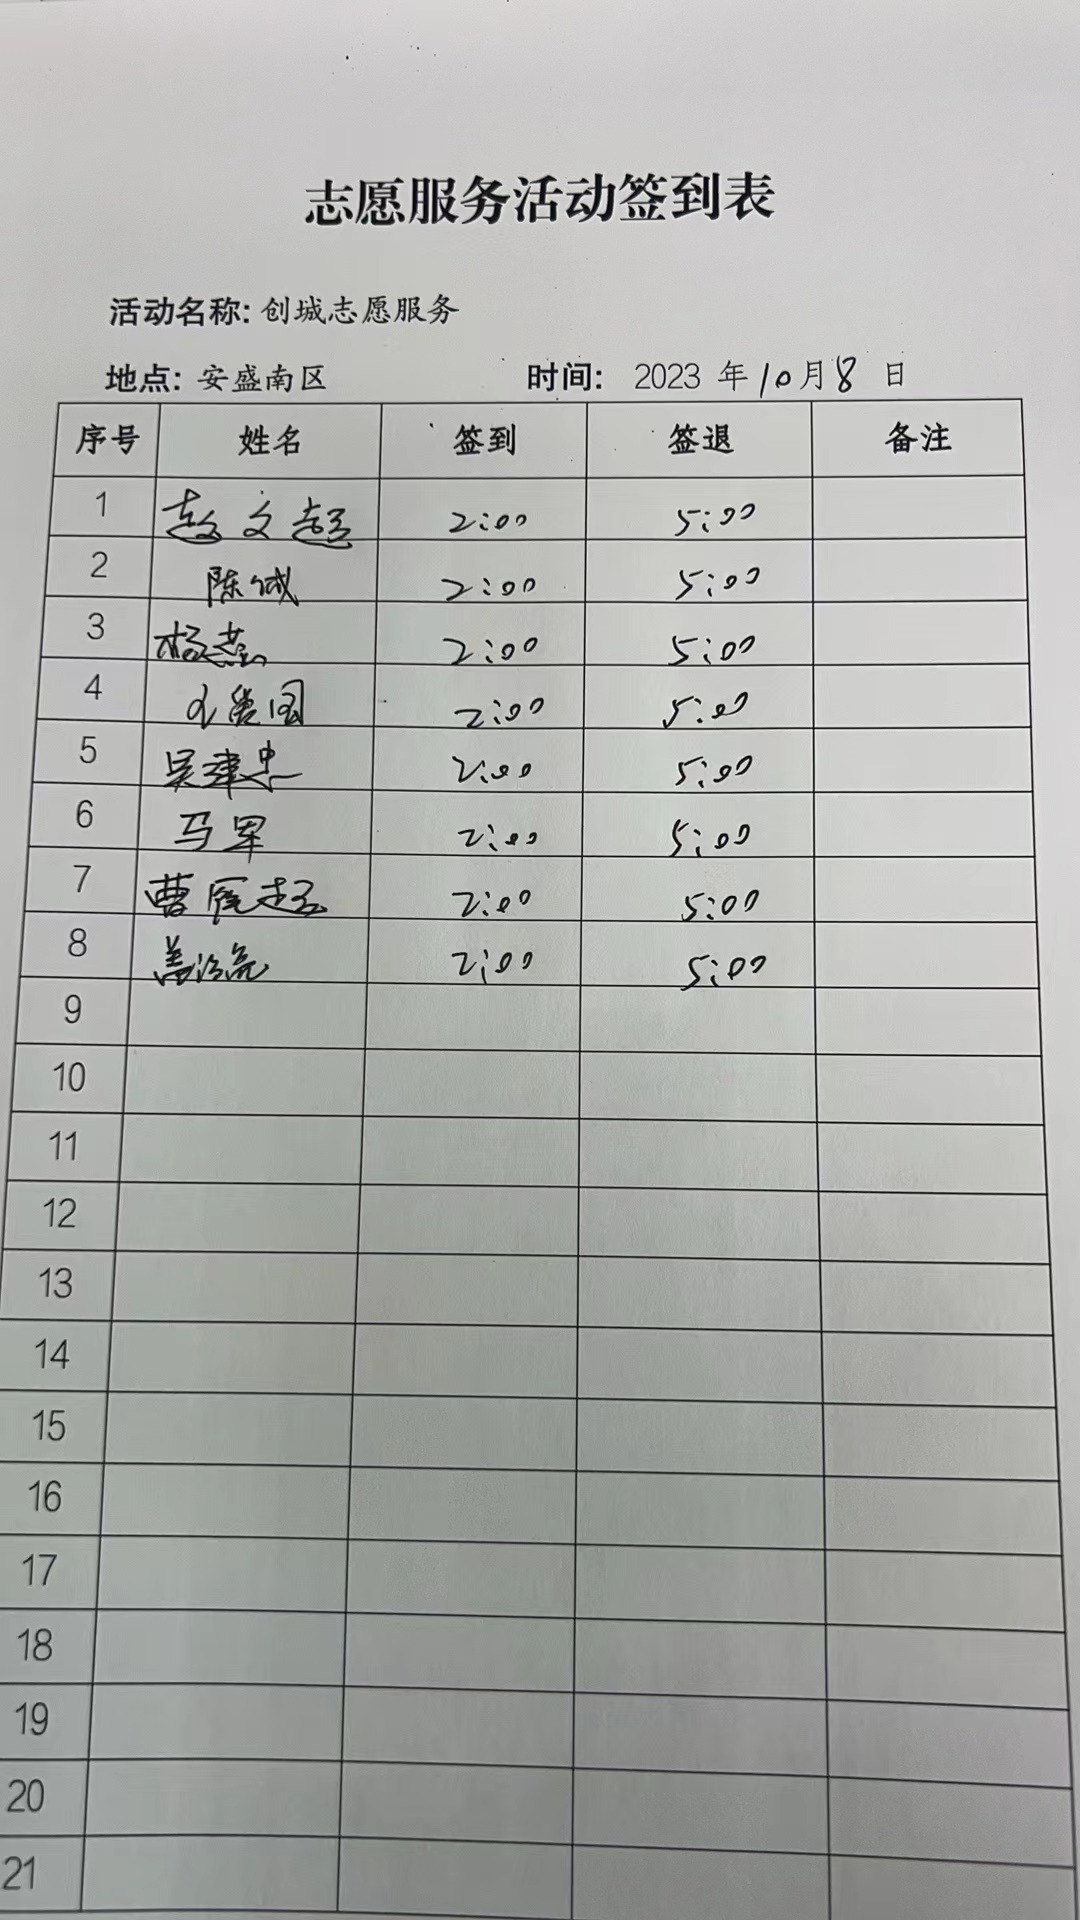 志愿服务活动签到表
活动名称: 创城志愿服务
地点: 安盛南区 时间: 2023 年 10 月 8 日
序号 姓名 签到 签退 备注
1 赵文超 2:00 5:00
2 陈诚 2:00 5:00
3 杨燕 2:00 5:00
4 2:00 5:00
5 吴建忠 2:00 5:00
6 马军 2:00 5:00
7 曹 超 2:00 5:00
8 2:00 5:00
9
10
11
12
13
14
15
16
17
18
19
20
21